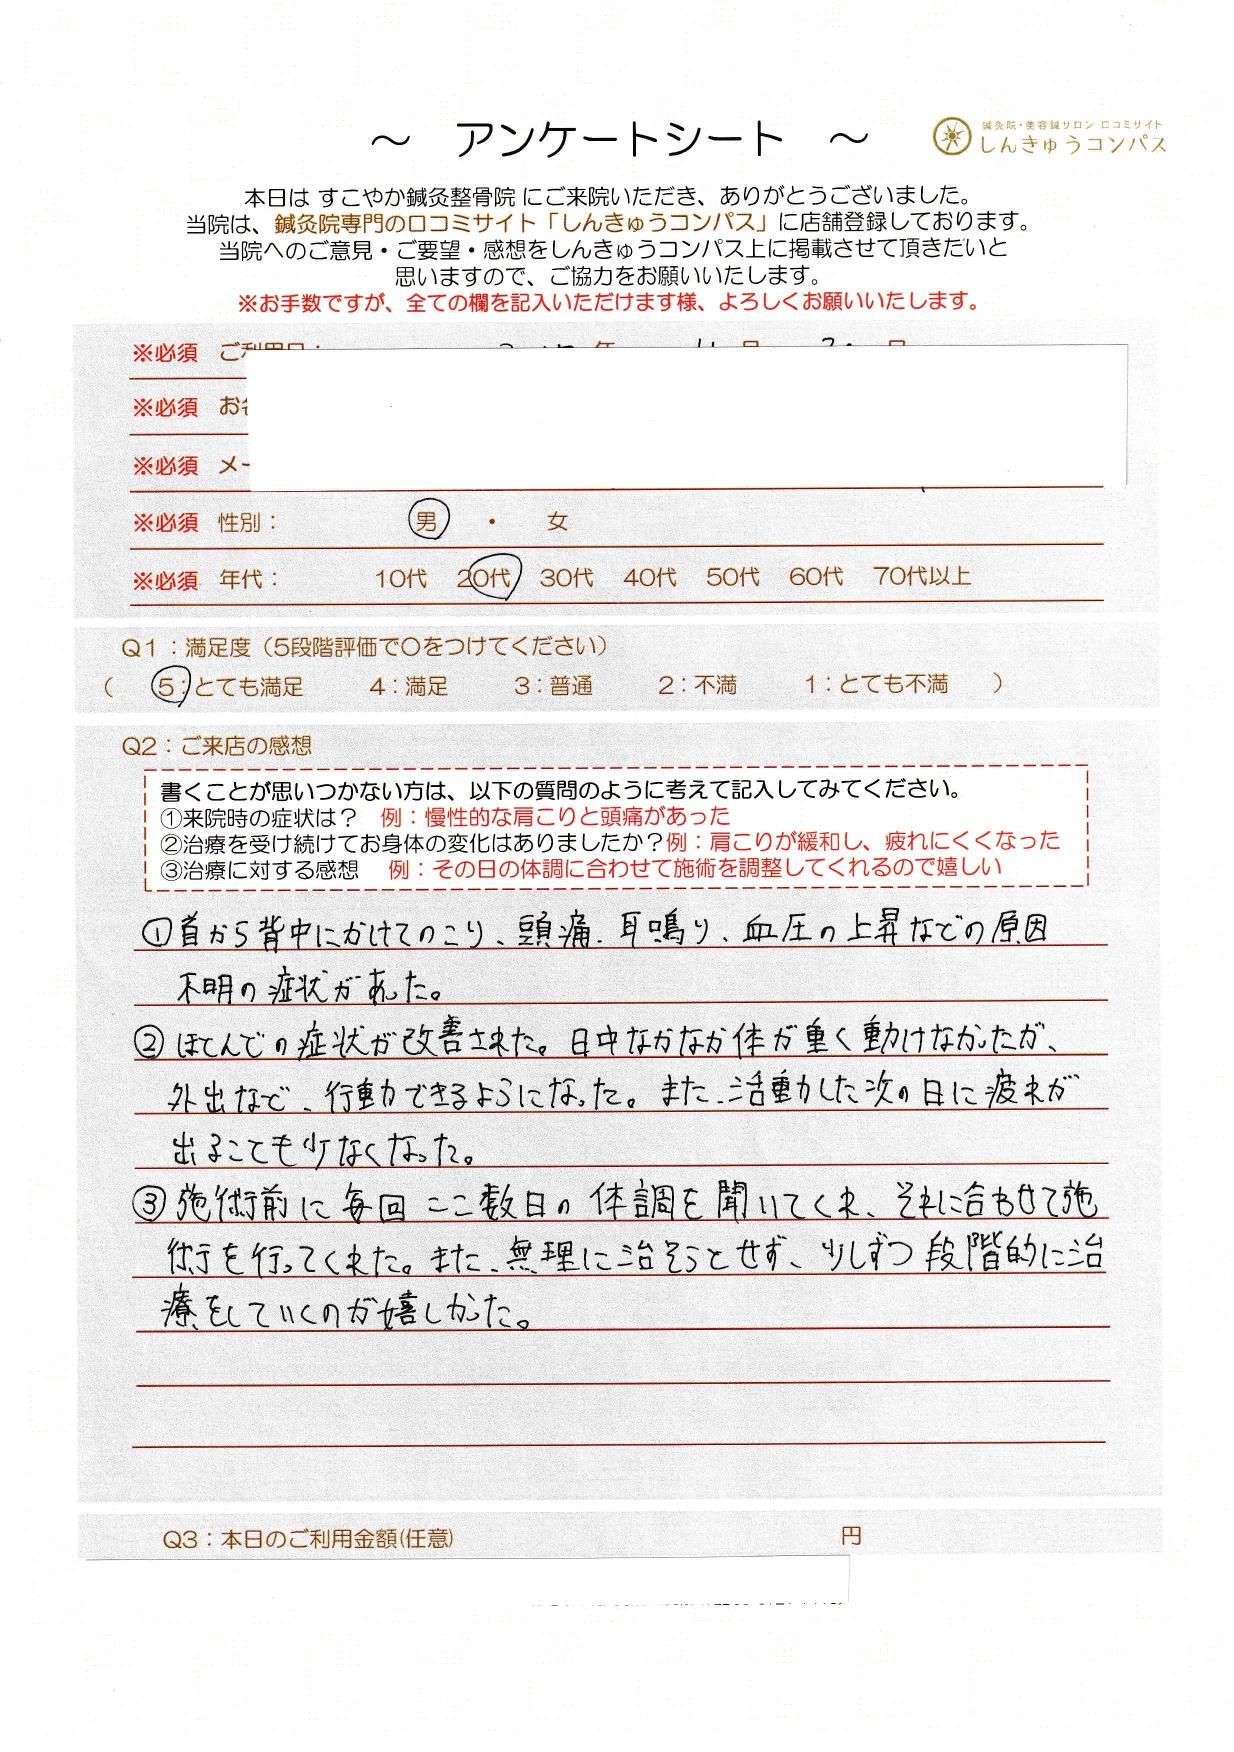 ～ アンケートシート ～
鍼灸院・美容鍼サロン 口コミサイト
しんきゅうコンパス
本日は すこやか鍼灸整骨院 にご来院いただき、ありがとうございました。
当院は、鍼灸院専門の口コミサイト「しんきゅうコンパス」に店舗登録しております。
当院へのご意見・ご要望・感想をしんきゅうコンパス上に掲載させて頂きたいと
思いますので、ご協力をお願いいたします。
※お手数ですが、全ての欄を記入いただけます様、よろしくお願いいたします。
※必須 ご利用日：
※必須 お
※必須 メー
※必須 性別： 男 ・ 女
※必須 年代： 10代 20代 30代 40代 50代 60代 70代以上
Q1：満足度（5段階評価で〇をつけてください）
（ 5：とても満足 4：満足 3：普通 2：不満 1：とても不満 ）
Q2：ご来店の感想
書くことが思いつかない方は、以下の質問のように考えて記入してみてください。
①来院時の症状は？ 例：慢性的な肩こりと頭痛があった
②治療を受け続けてお身体の変化はありましたか？例：肩こりが緩和し、疲れにくくなった
③治療に対する感想 例：その日の体調に合わせて施術を調整してくれるので嬉しい
①首から背中にかけてのこり、頭痛、耳鳴り、血圧の上昇などの原因
不明の症状があった。
②ほとんどの症状が改善された。日中なかなか体が重く動けなかったが、
外出など、行動できるようになった。また、活動した次の日に疲れが
出ることも少なくなった。
③施術前に毎回ここ数日の体調を聞いてくれ、それに合わせて施
術を行ってくれた。また、無理に治そうとせず、少しずつ段階的に治
療をしていくのが嬉しかった。
Q3：本日のご利用金額(任意) 円